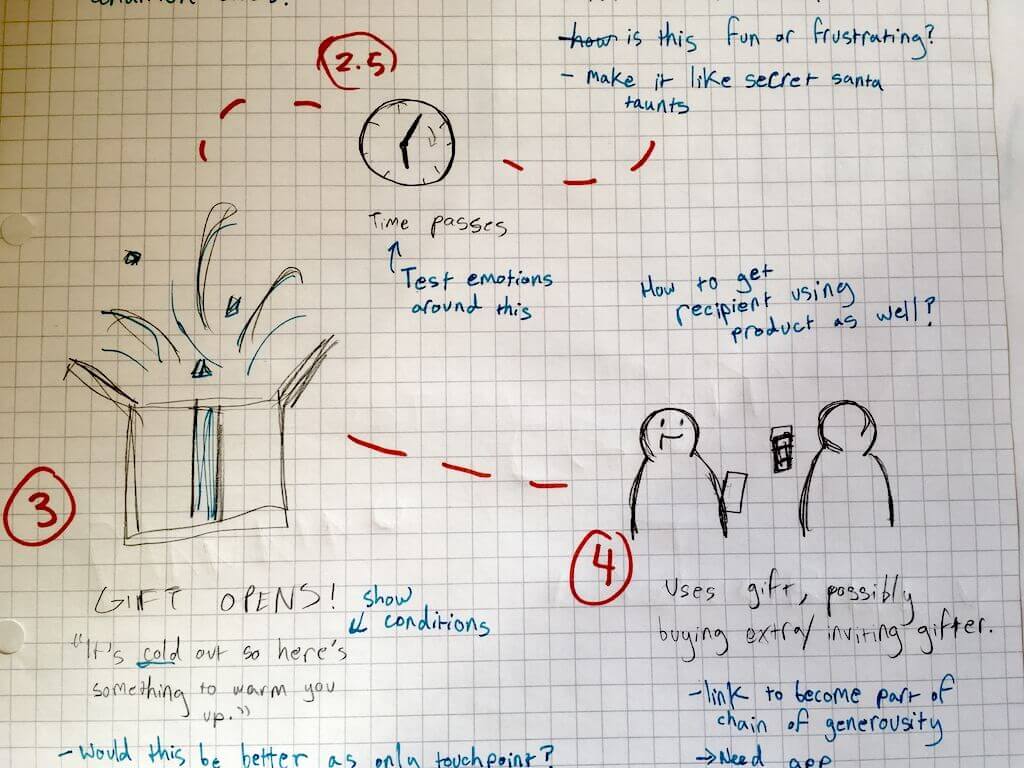 - how is this fun or frustrating?
- make it like secret santa
taunts
2.5
Time passes
Test emotions
around this
How to get
recipient using
product as well?
3
GIFT OPENS!
show
conditions
"It's cold out so here's
something to warm you
up."
- Would this be better as only touchpoint?
4
Uses gift, possibly
buying extra/inviting gifter.
- link to become part of
chain of generousity
→ Need app